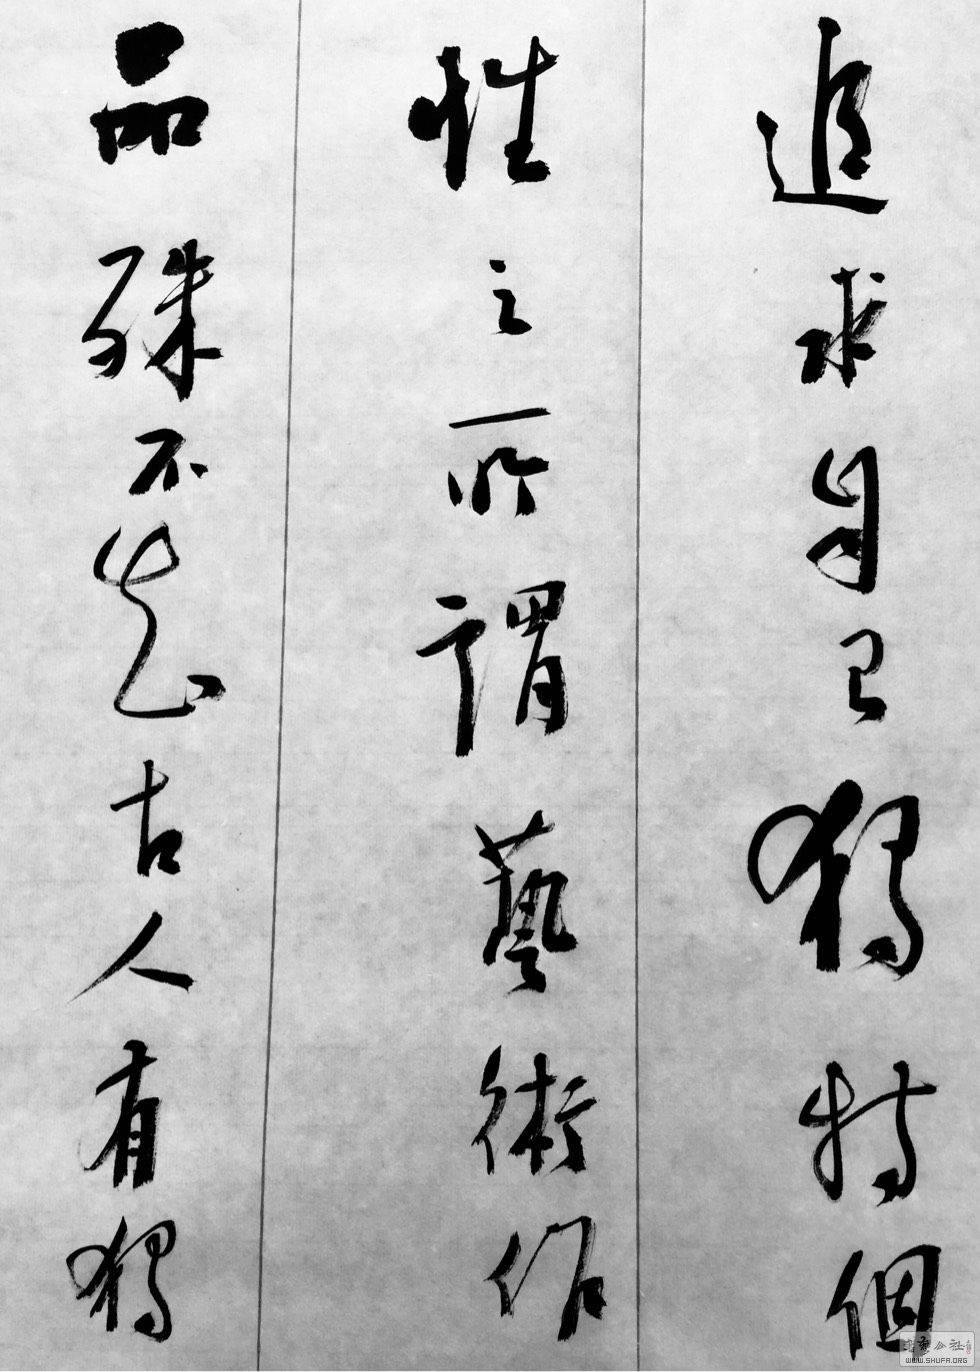 追求自己獨特個
性之所謂藝術作
品殊不知古人有獨
WWW.SHUFA.ORG